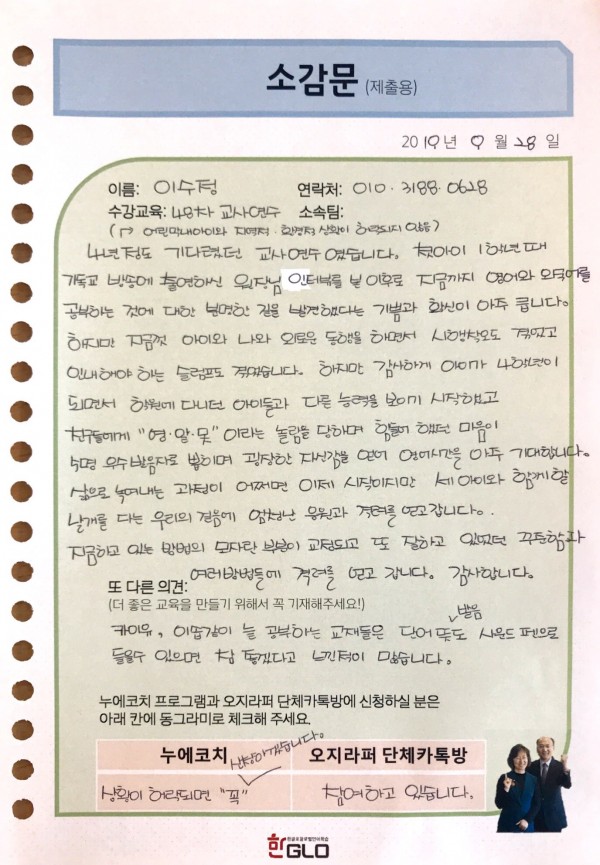 소감문 (제출용)
2019년 9월 28일
이름: 이수정 연락처: 010·3188·0628
수강교육: 48차 교사연수 소속팀:
(→ 어린막내아이와 지역적·환경적 상황이 허락되지 않음)
4년정도 기다렸던 교사연수 였습니다. 첫아이 1학년때
기독교 방송에 출연하신 원장님 인터뷰를 본 이후로 지금까지 영어와 외국어를
공부하는 것에 대한 분명한 길을 발견했다는 기쁨과 확신이 아주 큽니다.
하지만 지금껏 아이와 나와 외로운 동행을 하면서 시행착오도 겪었고
인내해야 하는 슬럼프도 겪었습니다. 하지만 감사하게 아이가 4학년이
되면서 학원에 다니던 아이들과 다른 능력을 보이기 시작했고
친구들에게 "영·말·못" 이라는 놀림을 당하며 힘들어 했던 마음이
5명 우수발음자로 뽑히며 굉장한 자신감을 얻어 영어시간을 아주 기대합니다.
삶으로 녹여내는 과정이 어쩌면 이제 시작이지만 세 아이와 함께할
날개를 다는 우리의 걸음에 엄청난 응원과 격려를 얻고갑니다.
지금하고 있는 방법의 모자란 부분이 교정되고 또 잘하고 있었던 꾸준함과
여러방법들에 격려를 얻고 갑니다. 감사합니다.
또 다른 의견:
(더 좋은 교육을 만들기 위해서 꼭 기재해주세요!)
발음
카이유, 이솝같이 늘 공부하는 교재들은 단어 뜻도 사운드 펜으로
들을수 있으면 참 좋겠다고 느낀적이 많습니다.
누에코치 프로그램과 오지라퍼 단체카톡방에 신청하실 분은
아래 칸에 동그라미로 체크해 주세요.
누에코치 오지라퍼 단체카톡방
신청하겠습니다.
상황이 허락되면 "꼭" 참여하고 있습니다.
한GLO